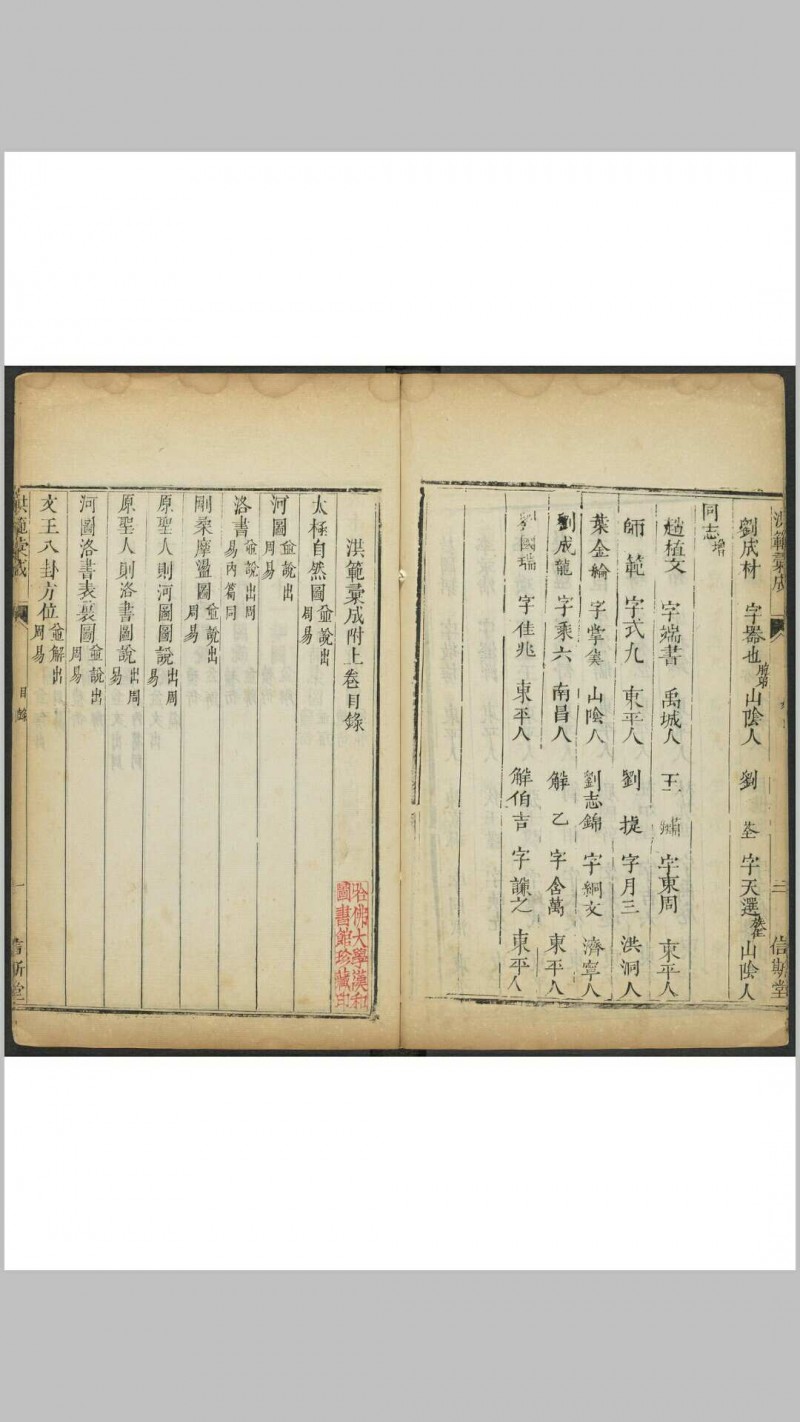 洪範彙成
三
信斯堂
劉成材 字器也 山陰人 劉 荃 字天選 山陰人
同志增
趙植文 字端書 禹城人 王 字東周 東平人
師範 字式九 東平人 劉捷 字月三 洪洞人
葉金綸 字掌 山陰人 劉志錦 字絅文 濟寧人
劉成龍 字乘六 南昌人 解乙 字含萬 東平人
劉國瑞 字佳兆 東平人 解伯吉 字謙之 東平人
洪範彙成附上卷目錄
太極自然圖 並說出周易
河圖 並說出周易
洛書 並說出周易內篇同
剛柔摩盪圖 並說出周易
原聖人則河圖圖說 出周易
原聖人則洛書圖說 出周易
河圖洛書表裏圖 並說出周易
文王八卦方位 並解出周易
洪範彙成
目錄
一
信斯堂
哈佛大學漢和圖書館珍藏印